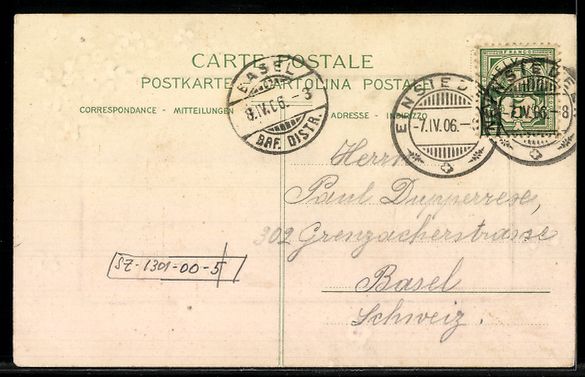 CARTE POSTALE
POSTKARTE - CARTOLINA POSTALE
CORRESPONDANCE - MITTEILUNGEN
ADRESSE - INDIRIZZO
FRANCO
BASEL
8.IV.06. - 8
BRF. DISTR.
-7.IV.06.-8
-7.IV.06.-8
Herrn
Paul
302 Grenzacherstrasse
Basel
Schweiz.
SZ-1301-00-5